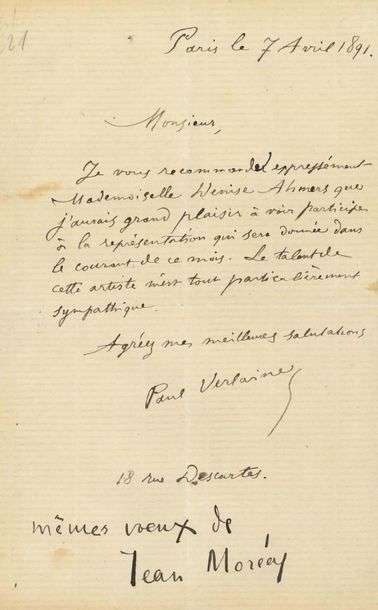 21
Paris le 7 Avril 1891.
Monsieur,
Je vous recommande expressément
Mademoiselle Denise Ahmers que
j'aurais grand plaisir à voir participer
à la représentation qui sera donnée dans
le courant de ce mois. Le talent de
cette artiste m'est tout particulièrement
sympathique.
Agréez mes meilleures salutations
Paul Verlaine
18 rue Descartes.
mêmes voeux de
Jean Moréas